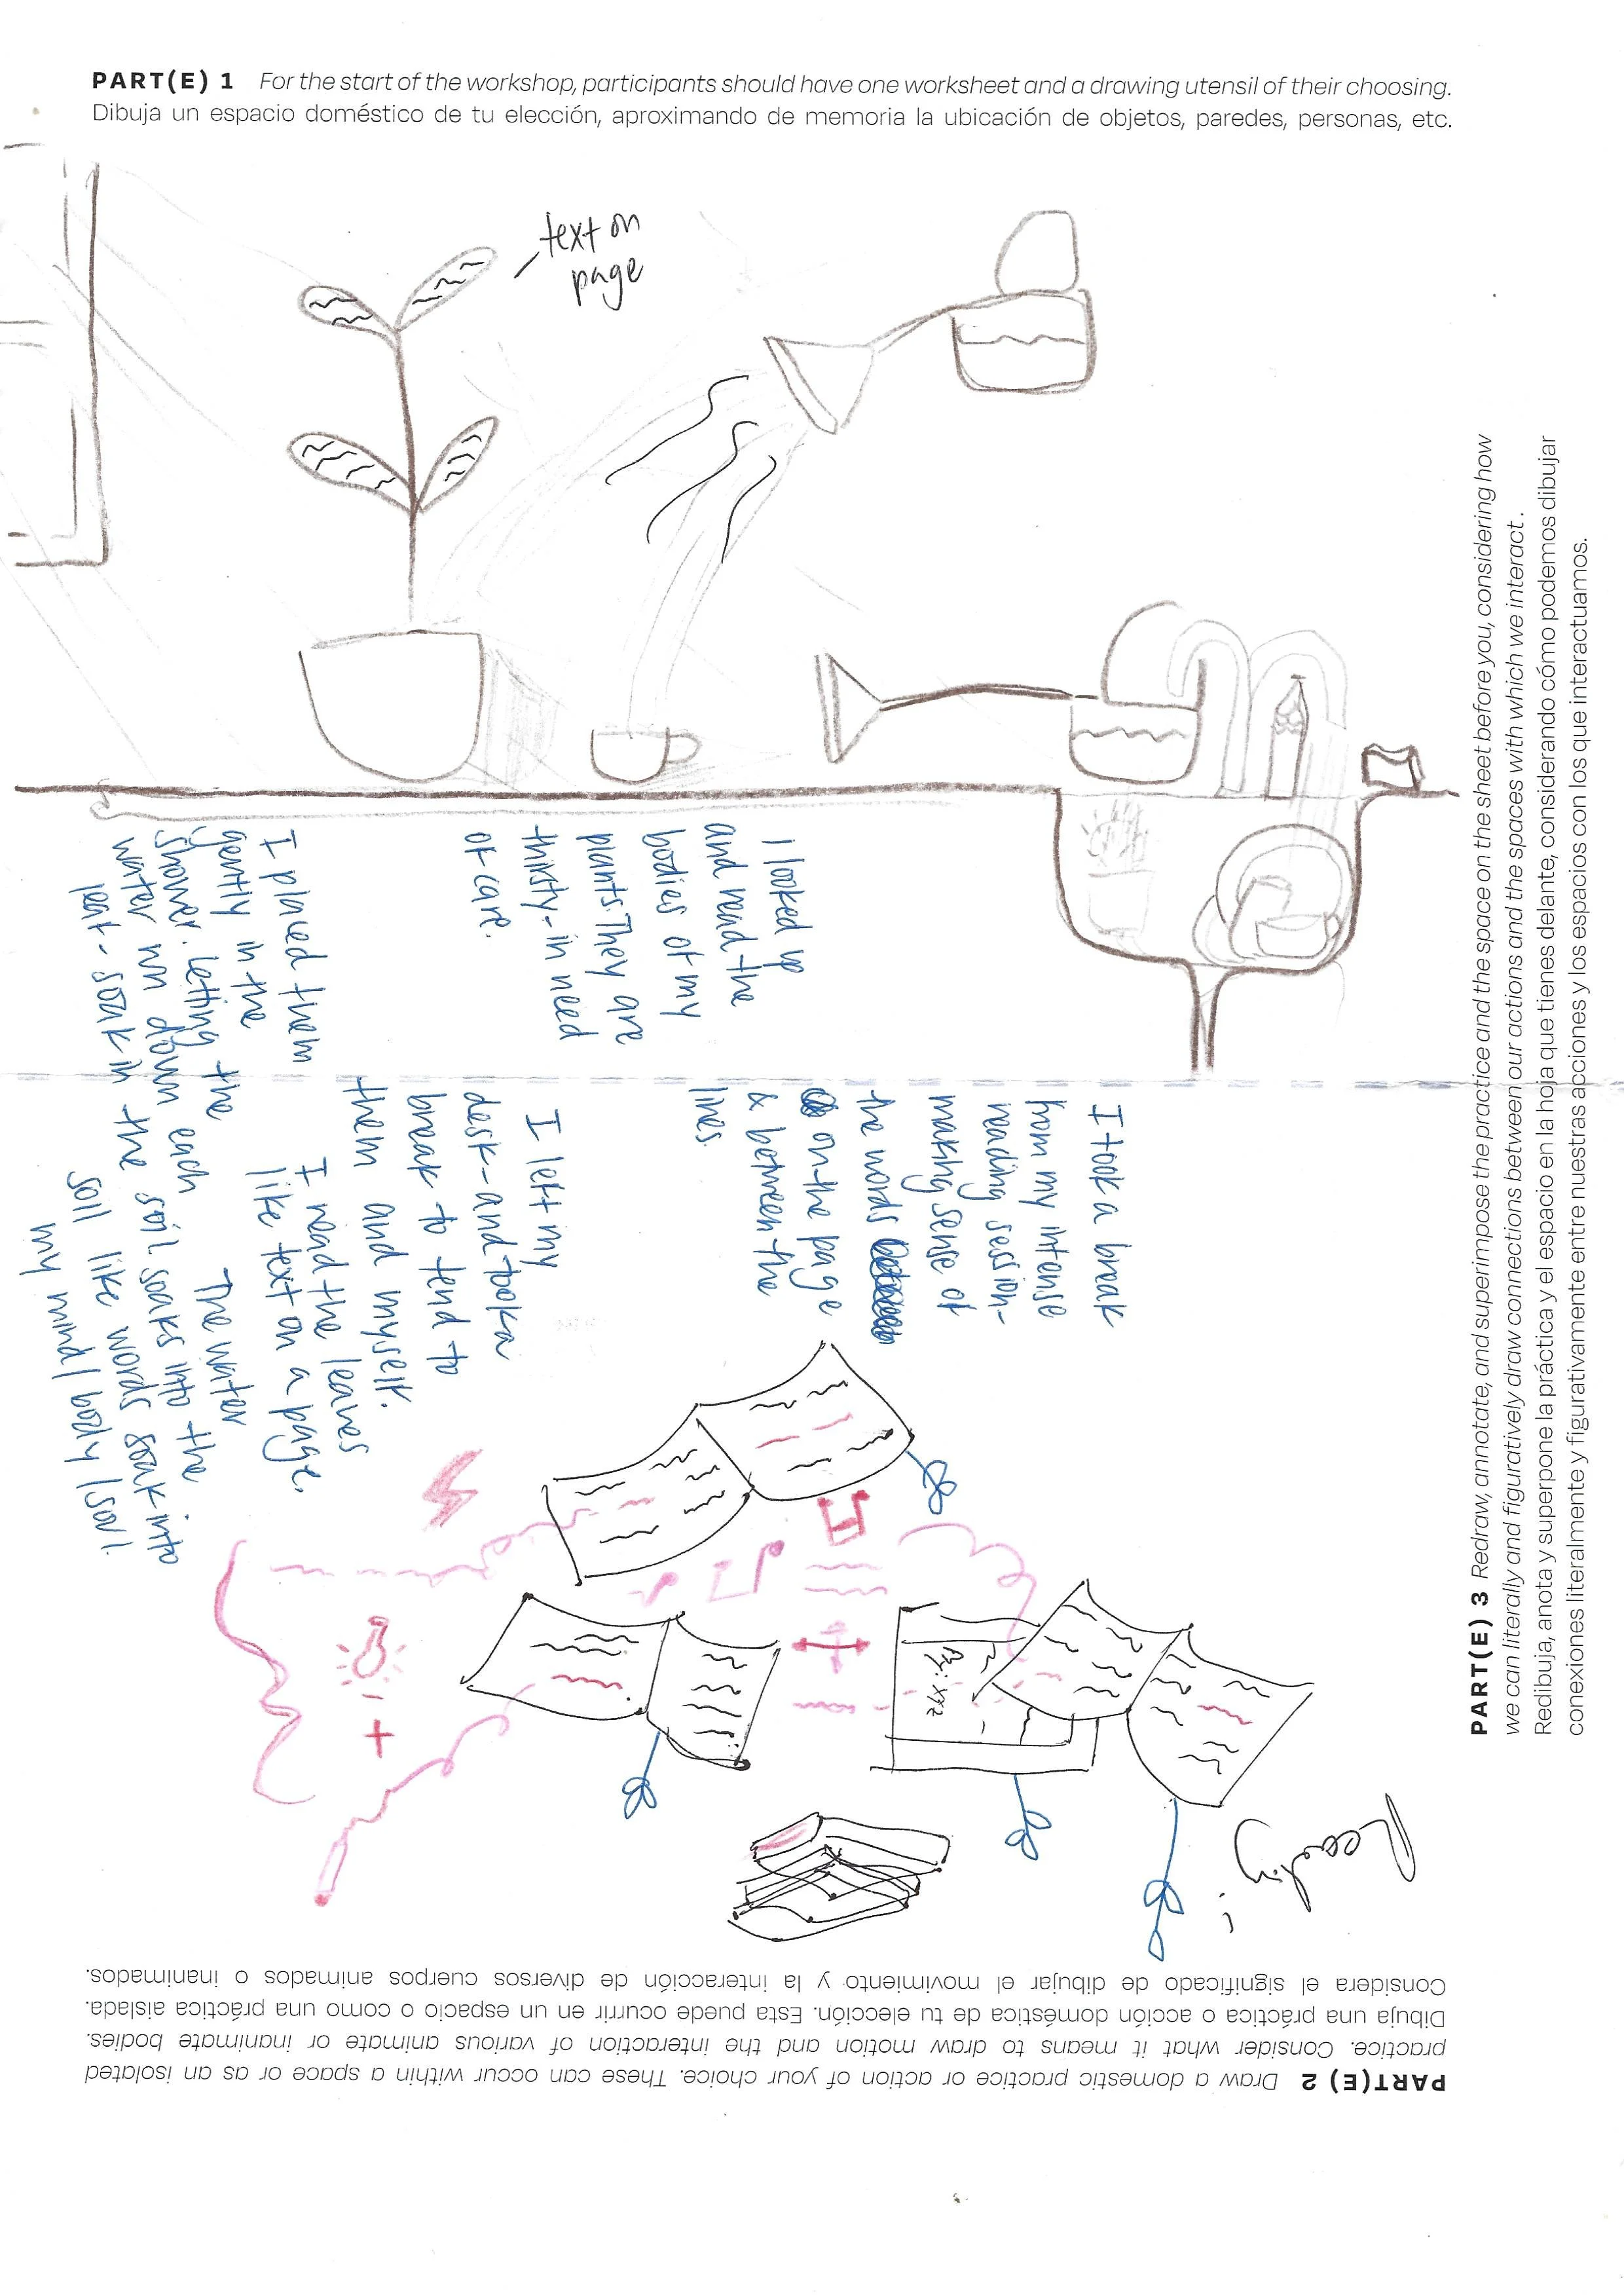 PART(E) 1 For the start of the workshop, participants should have one worksheet and a drawing utensil of their choosing.
Dibuja un espacio doméstico de tu elección, aproximando de memoria la ubicación de objetos, paredes, personas, etc.
text on
page
I took a break
from my intense
reading session-
making sense of
the words
on the page
& between the
lines.
I looked up
and read the
bodies of my
plants. They are
thirsty - in need
of care.
I left my
desk - and took a
break to tend to
them and myself.
I read the leaves
like text on a page.
I placed them
gently in the
shower. letting the
water run down each
leaf - soak in the soil.
The water
soaks into the
soil like words soak into
my mind / body / soul.
By: XYZ
Reading
PART(E) 2 Draw a domestic practice or action of your choice. These can occur within a space or as an isolated
practice. Consider what it means to draw motion and the interaction of various animate or inanimate bodies.
Dibuja una práctica o acción doméstica de tu elección. Esta puede ocurrir en un espacio o como una práctica aislada.
Considera el significado de dibujar el movimiento y la interacción de diversos cuerpos animados o inanimados.
PART(E) 3 Redraw, annotate, and superimpose the practice and the space on the sheet before you, considering how
we can literally and figuratively draw connections between our actions and the spaces with which we interact.
Redibuja, anota y superpone la práctica y el espacio en la hoja que tienes delante, considerando cómo podemos dibujar
conexiones literalmente y figurativamente entre nuestras acciones y los espacios con los que interactuamos.